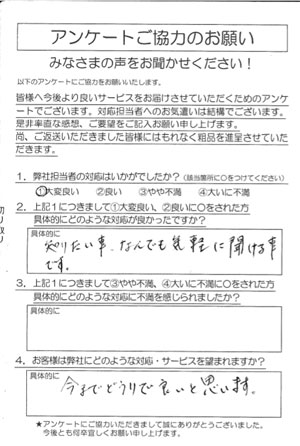 アンケートご協力のお願い
みなさまの声をお聞かせください！
以下のアンケートにご協力をお願いいたします。
皆様へ今後より良いサービスをお届けさせていただくためのアンケ
ートでございます。対応担当者へのお気遣いは結構でございます。
是非率直な感想、ご要望をご記入お願い申し上げます。
尚、ご返送いただきました皆様にはもれなく粗品を進呈させていた
だきます。
1．弊社担当者の対応はいかがでしたか？（該当箇所に〇をつけてください）
①大変良い　②良い　③やや不満　④大いに不満
2．上記1につきまして①大変良い、②良いに〇をされた方
具体的にどのような対応が良かったですか？
具体的に
知りたい事、なんでも気軽に聞ける事
です。
3．上記1につきまして③やや不満、④大いに不満に〇をされた方
具体的にどのような対応に不満を感じられましたか？
具体的に
4．お客様は弊社にどのような対応・サービスを望まれますか？
具体的に
今までどうりで良いと思います。
★アンケートにご協力いただきまして誠にありがとうございました。
今後とも何卒宜しくお願い申し上げます。